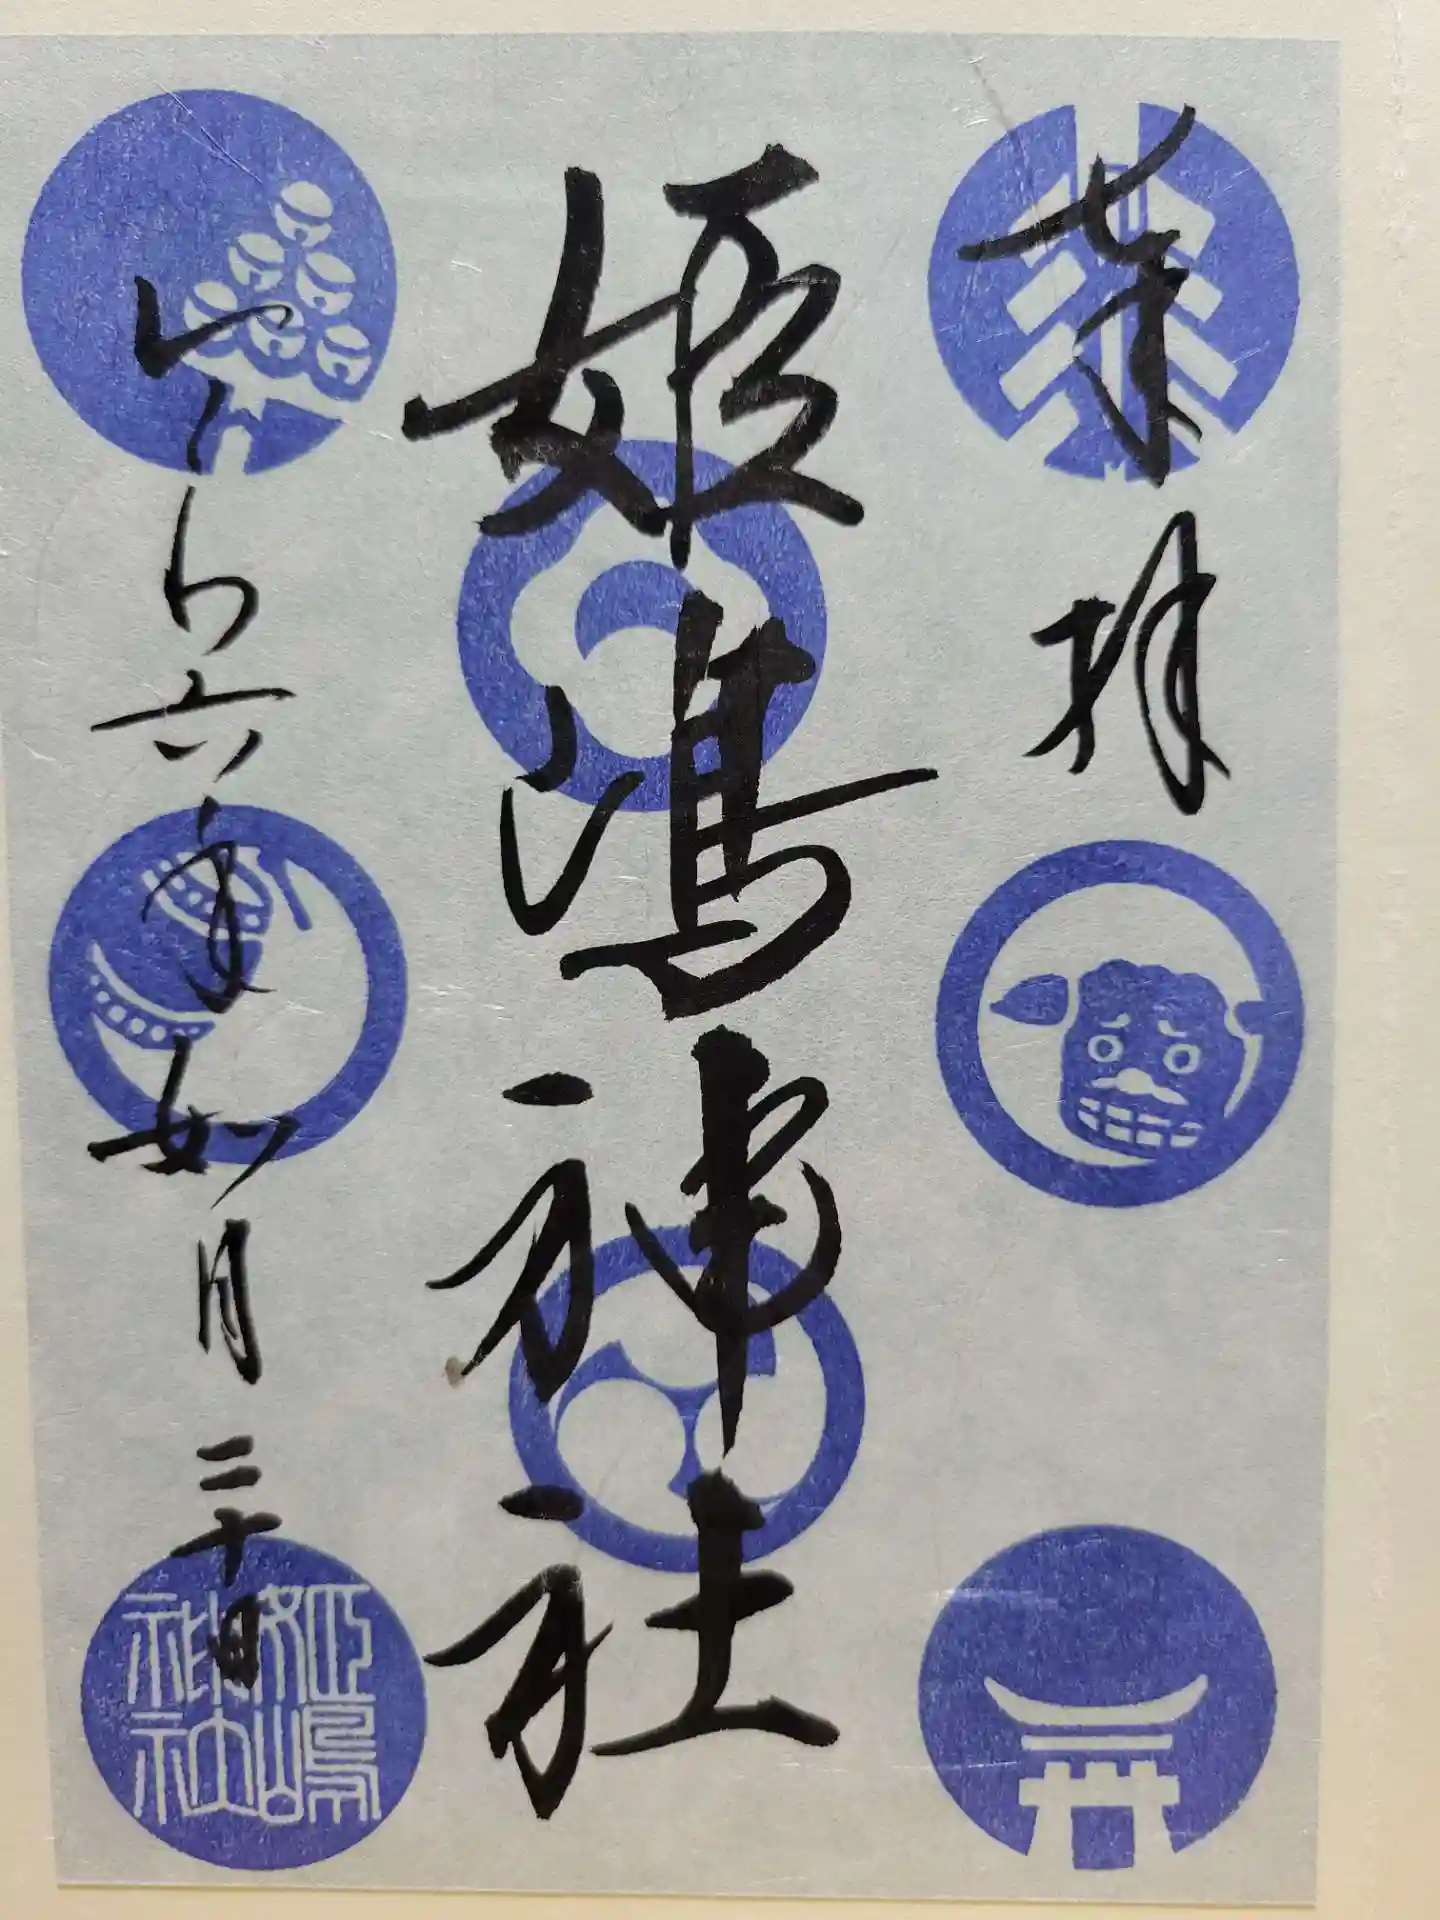 奉拝
姫嶋神社
令和六年如月二十日
姫嶋
神社